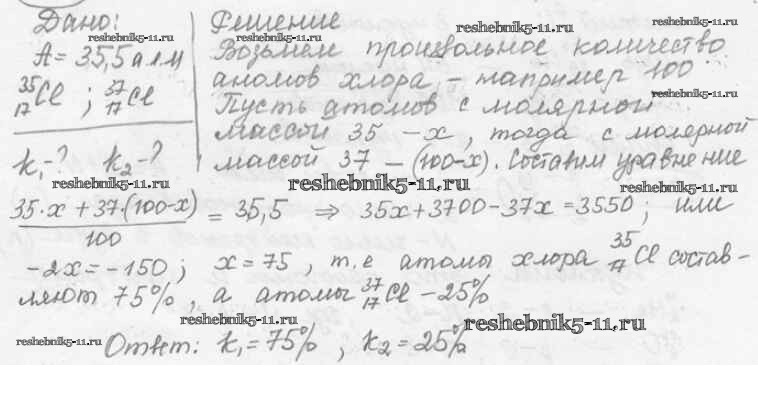 Дано:
A = 35,5 а.е.м
³⁵₁₇Cl ; ³⁷₁₇Cl
k₁-? k₂-?
Решение
Возьмем произвольное количество
атомов хлора – например 100
Пусть атомов с молярной
массой 35 – x, тогда с молярной
массой 37 – (100-x). Составим уравнение
(35·x + 37·(100-x))/100 = 35,5 ⇒ 35x+3700-37x=3550; или
-2x=-150; x=75, т.е атомы хлора ³⁵₁₇Cl состав-
ляют 75%, а атомы ³⁷₁₇Cl – 25%
Ответ: k₁=75%, k₂=25%
reshebnik5-11.ru
reshebnik5-11.ru
reshebnik5-11.ru
reshebnik5-11.ru
reshebnik5-11.ru
reshebnik5-11.ru
reshebnik5-11.ru
reshebnik5-11.ru
reshebnik5-11.ru
reshebnik5-11.ru
reshebnik5-11.ru